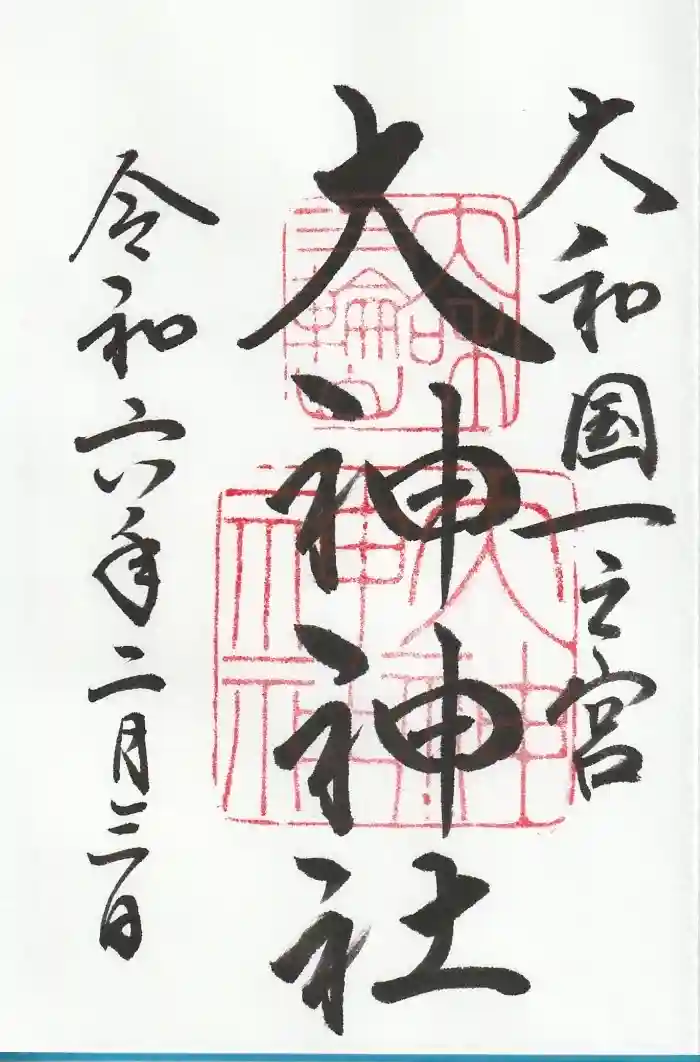 大和国一之宮
大神神社
令和六年二月三日
大神神社